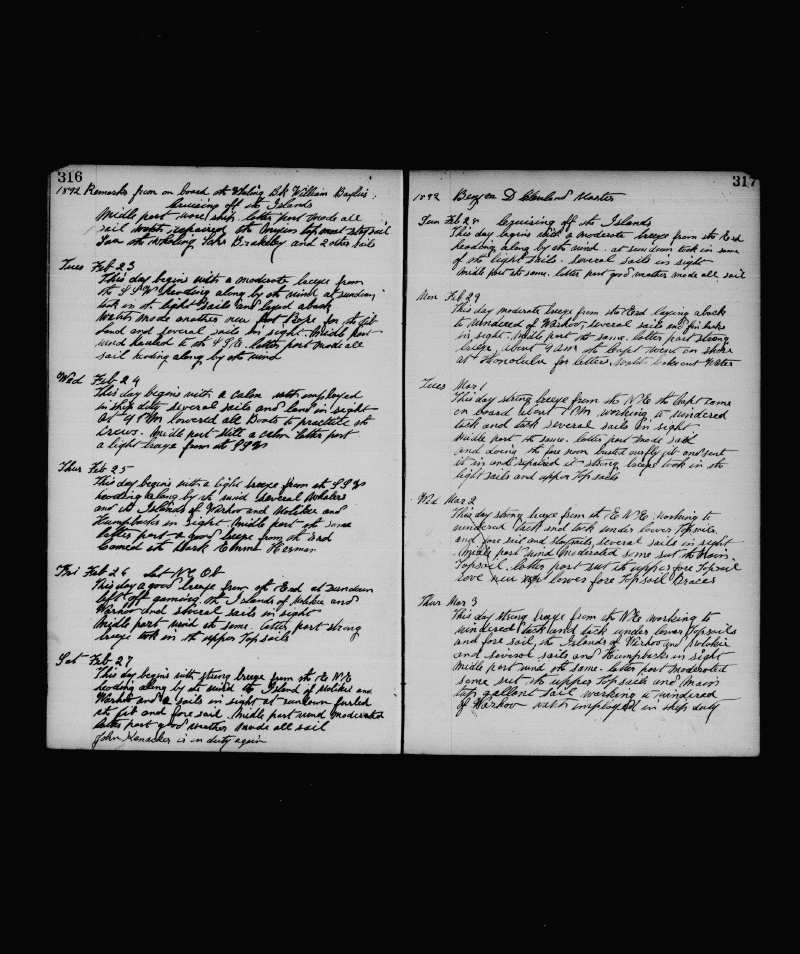 316
1892 Remarks from on board the Whaling Bk William Baylies
Cruising off the Islands
Midle part wore ship. latter part made all
sail watch repaired the topmast staysail
Saw the whaling and 2 other sails
Tues Feb 23
This day begins with a moderate breeze from
the heading along by the wind at sundown
took in the light sails and layed aback
Watch made another new Rope for the jib
Land and several sails in sight. Midle part
wind hauled to the latter part made all
sail heding along by the wind
Wed Feb 24
This day begins with a calm watch employed
in ship duty several sails and land in sight
at 4 PM lowered all Boats to practice the
crews. Midle part still a calm latter part
a light breeze from the
Thur Feb 25
This day begins with a light breeze from the
heading along by the wind several Whalers
and the Islands of Warhoo and Molokie and
Humpbacks in sight Midle part the same
latter part a good breeze from the End
the Bark
Feb 26
This day a good breeze from the End at Sundown
left off gamming. the Islands of Molokie and
Warhoo and several sails in sight
Midle part wind the same. latter part strong
breeze took in the upper Topsails
Sat Feb 27
This day begins with strong breeze from the E N E
heading along by the wind the Island of Molokie and
Warhoo and 2 sails in sight at sundown furled
the jib and fore sail. Midle part wind moderated
latter part good weather made all sail
John is on duty again
317
1892 D Cleveland Master
Sun Feb 28 Cruising off the Islands
This day begins with a moderate breeze from the End
heading along by the wind. at sundown took in some
of the light sails. several sails in sight
Midle part the same. latter part good weather made all sail
Mon Feb 29
This day moderate breeze from the End laying aback
to windered of Warhoo, several sails and fin backs
in sight. Midle part the same. latter part strong
breeze about 9 AM the Capt went on shore
at Honolulu for letters. Watch broke out Water
Tues Mar 1
This day strong breeze from the N E the Capt came
on board about 1 PM working to windered
tack and tack several sails in sight
Midle part the same. latter part made sail
and during the fore noon busted and sent
it in and repaired it strong breeze took in the
light sails and upper Top sails
Wed Mar 2
This day strong breeze from the E N E. working to
windered tack and tack under lower Topsails
and fore sail and staysails, several sails in sight
Midle part wind moderated some sut the Main
Topsail. latter part sut the upper fore Topsail
rove new lower fore Topsail Braces
Thur Mar 3
This day strong breeze from the N E working to
windered tack and tack under lower Topsails
and fore sail, the Islands of Warhoo and Molokie
and several sails and Humpbacks in sight
Midle part wind the same. latter part moderated
some sut the upper Topsails and Main
top gallant sail working to windered
of Warhoo watch employed in ships duty